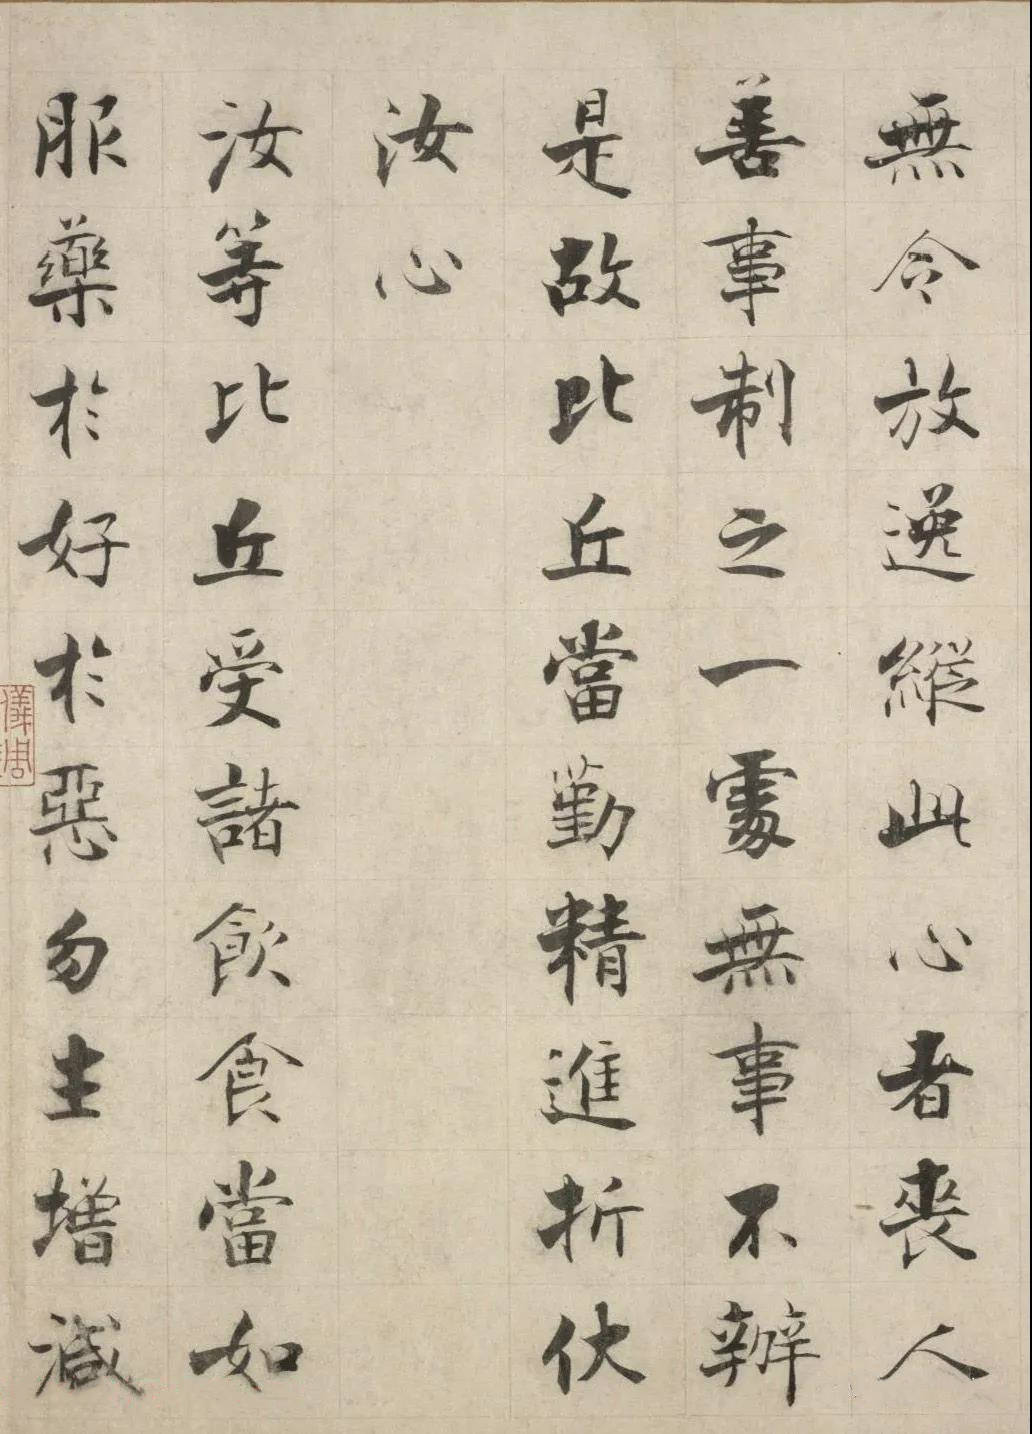 無令放逸縱此心者喪人
善事制之一處無事不辦
是故比丘當勤精進折伏
汝心
汝等比丘受諸飲食當如
服藥於好於惡勿生增減
儀周